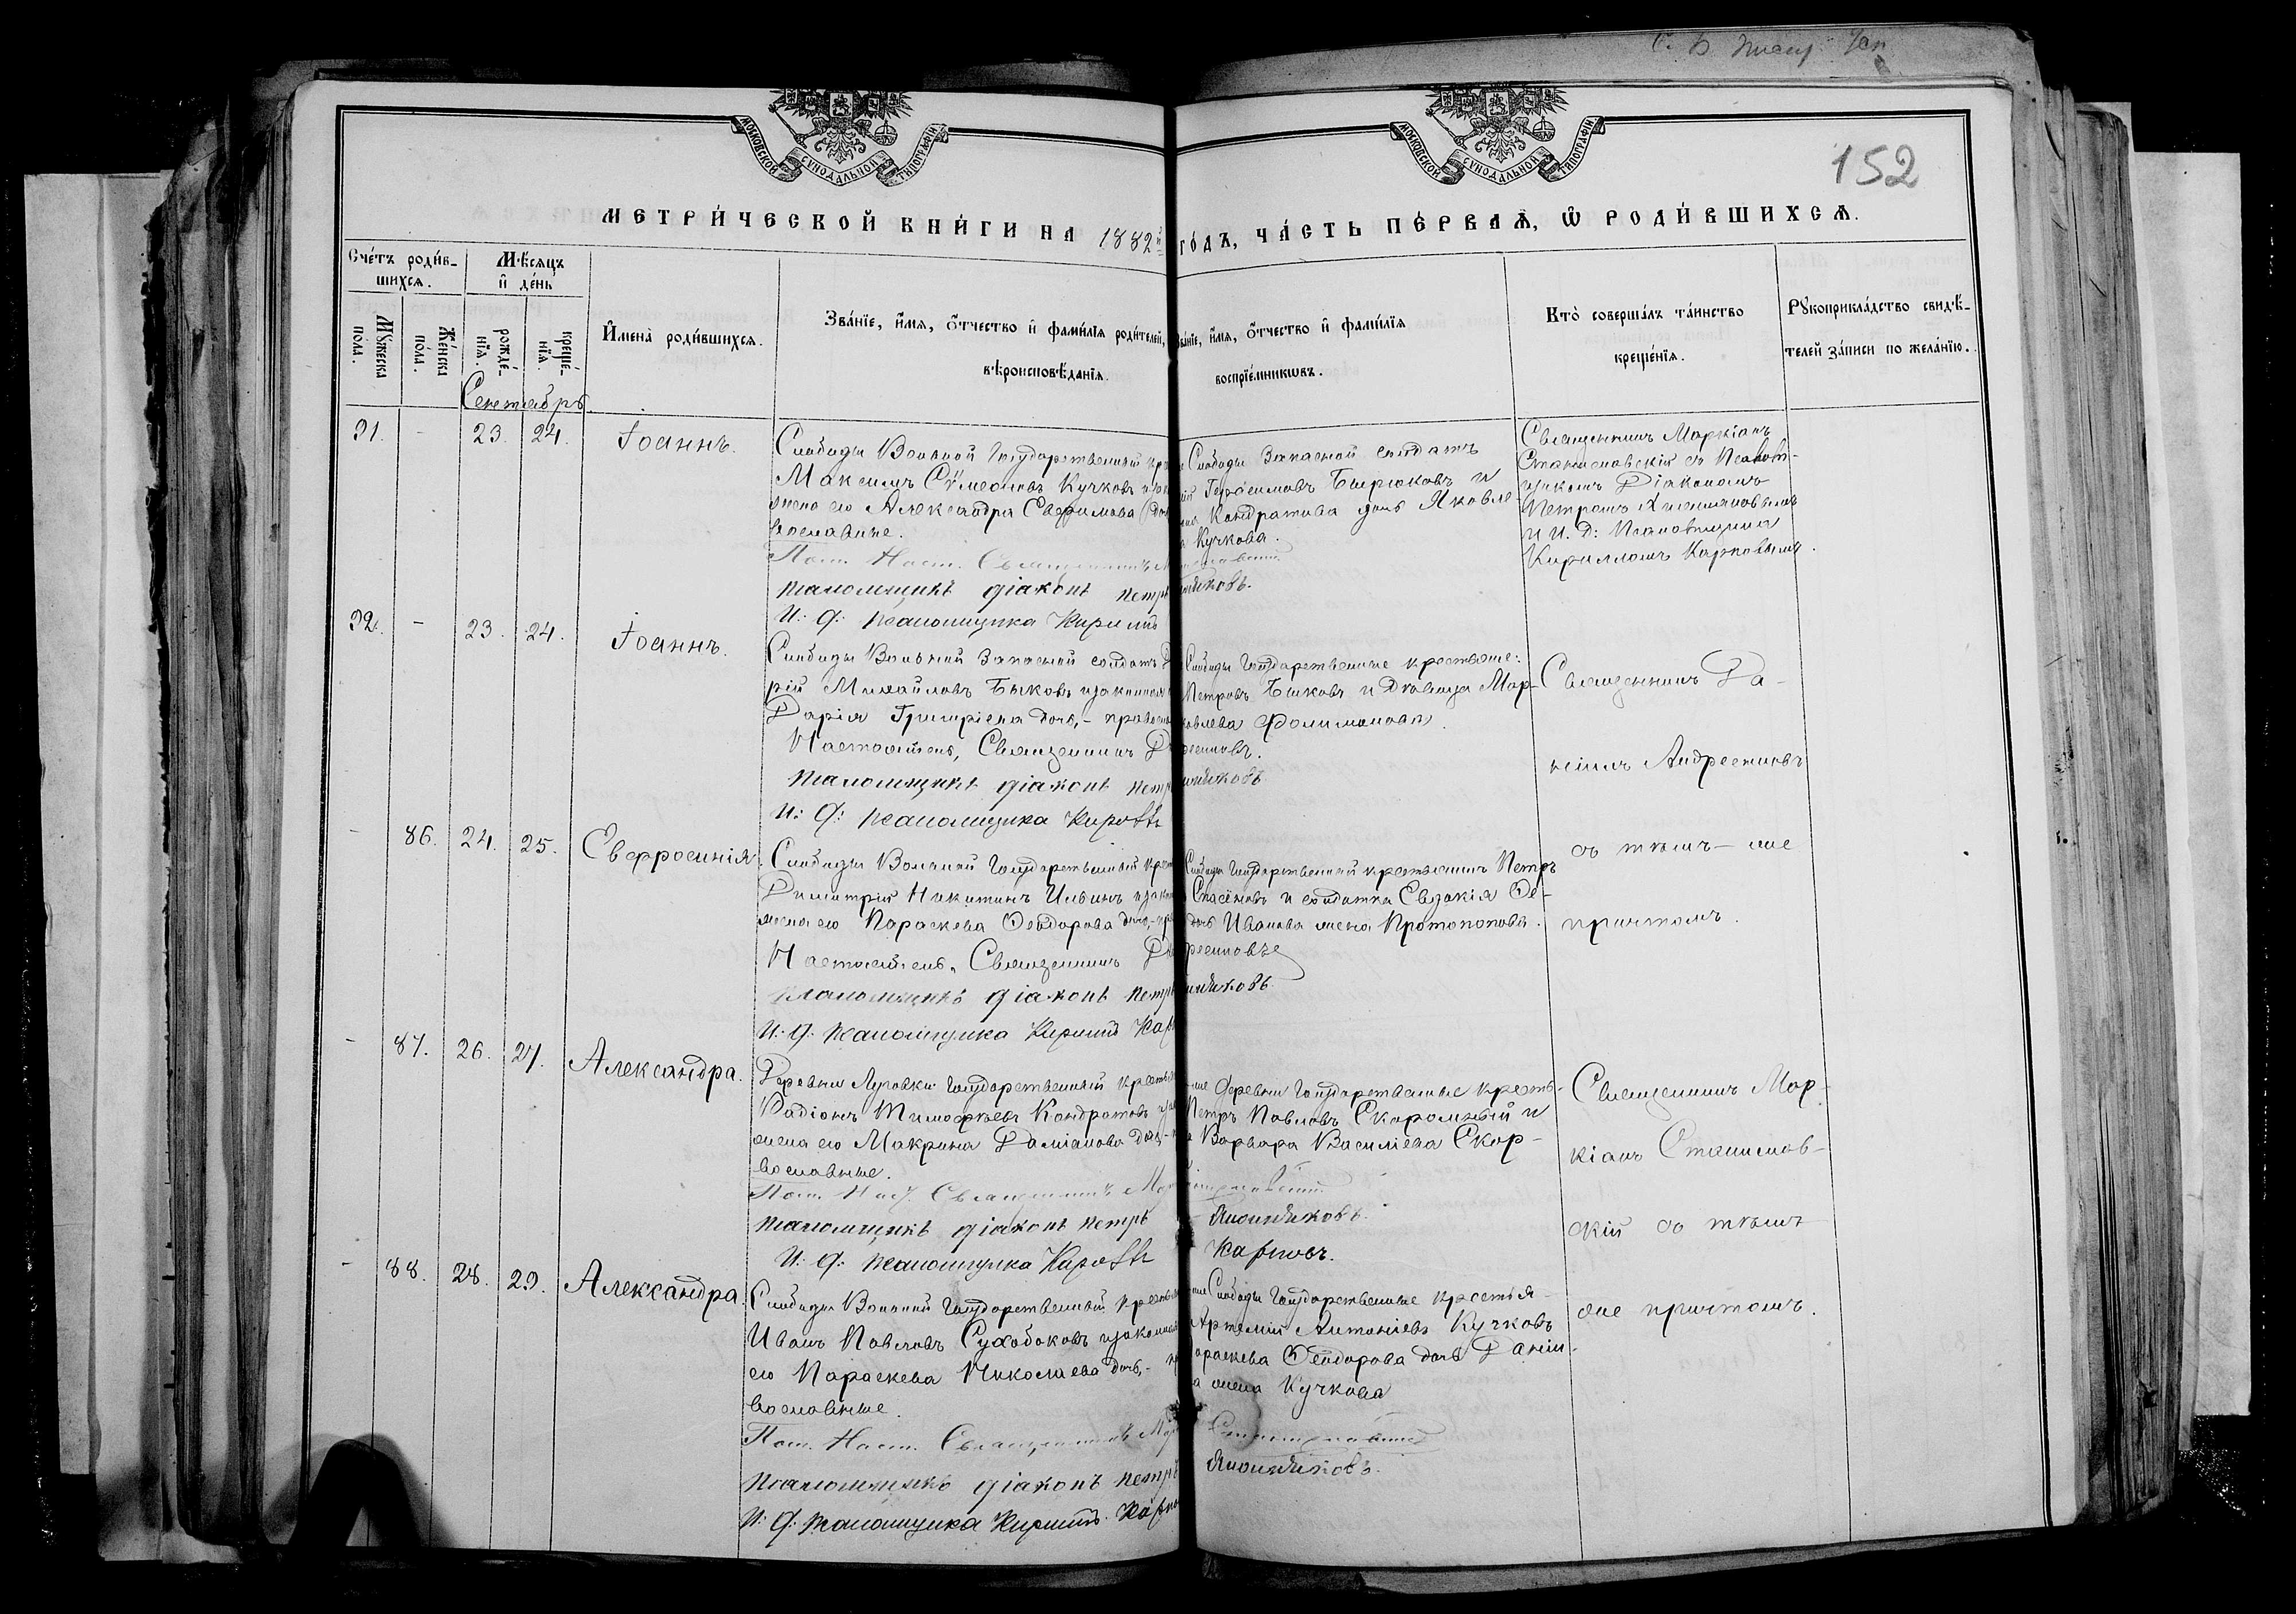 152
МОСКОВСКОЙ СУНОДАЛЬНОЙ ТИПОГРАФІИ
МОСКОВСКОЙ СУНОДАЛЬНОЙ ТИПОГРАФІИ
МЕТРИ́ЧЕСКОЙ КНИ́ГИ НА 1882й ГО́ДЪ, ЧА́СТЬ ПЕ́РВАѦ, Ѽ РОДИ́ВШИХСѦ.
Сче́тъ роди́в-
шихсѧ.
Мѣ́сѧцъ
и҆ де́нь
Мꙋ́жеска
по́ла.
Же́нска
по́ла.
рожде́-
нїѧ.
креще́-
нїѧ.
И҆мена̀ роди́вшихсѧ.
Зва́нїе, и҆́мѧ, ѻ҆́тчество и҆ фамѝлїѧ роди́телей,
вѣроисповѣ́данїѧ.
Зва́нїе, и҆́мѧ, ѻ҆́тчество и҆ фамѝлїѧ
воспрїе́мникѡвъ.
Кто̀ соверша́лъ та́инство
креще́нїѧ.
Рꙋкоприкла́дство свидѣ́-
телей за́писи по жела́нїю.
Сентябрь
31. - 23. 24. Іоаннъ.
Слободы Вольной Государственный кре
Максимъ Сѵмеоновъ Кучковъ и зак
жена его Александра Ефимова доч
вославные.
Священникъ
псаломщикъ діаконъ петръ
и. д. псаломщика Кирилъ
Слободы Запасной солдатъ
Герасимовъ Бирюковъ и
Кондратова дочь Яковле-
а Кучкова.
Священникъ Маркіанъ
Станиславскій съ Псалом-
щикомъ Діакономъ
Петромъ
и И. Д. Псаломщика
Кирилломъ Карповымъ.
32. - 23. 24. Іоаннъ.
Слободы Вольной Запасной солдатъ
рій Михайловъ Быковъ и законная
Дарія Григоріева дочь,- правосл
Настоятель, Священникъ
псаломщикъ діаконъ петр
и. д. псаломщика
Слободы Государственные крестьяне:
Петровъ Быковъ и Дѣвица Мар-
ковлева Филимонова.
Священникъ Да-
ніилъ Андреенковъ
съ тѣмъ-же
причтомъ.
- 86. 24. 25. Евфросинія.
Слободы Вольной Государственный крест
Димитрій Никитинъ Ильинъ и закон
жена его Параскева Ѳеодорова дочь,-пра
Настоятель, Священникъ
псаломщикъ діаконъ петръ
и. д. псаломщика Кирилъ Кар
Слободы Государственный крестьянинъ Петръ
Спасёновъ и солдатка Евдокія Ѳе-
дочь Иванова жена Протопопова.
- 87. 26. 27. Александра.
Деревни Луговки Государственный крестья
Радіонъ Тимофеевъ Кондратовъ и зак
жена его Макрина Даміанова дочь,-п
вославные.
Священникъ Мар
псаломщикъ діаконъ петръ
и. д. псаломщика
деревни Государственные кресть-
Петръ Павловъ Скоромный и
Варвара Василіева Скор-
Карповъ.
Священникъ Мар-
кіанъ Станислав-
скій съ тѣмъ
же причтомъ.
- 88. 28. 29. Александра.
Слободы Вольной Государственный кресть
Иванъ Павловъ Сухобоковъ и законная
его Параскева Николаева дочь,- пр
вославные.
Священникъ Мар
псаломщикъ діаконъ петръ
и. д. псаломщика Кирилъ Карпо
Слободы Государственные крестья-
Артемій Антоніевъ Кучковъ
араскева Ѳеодорова дочь Даніи-
а жена Кучкова